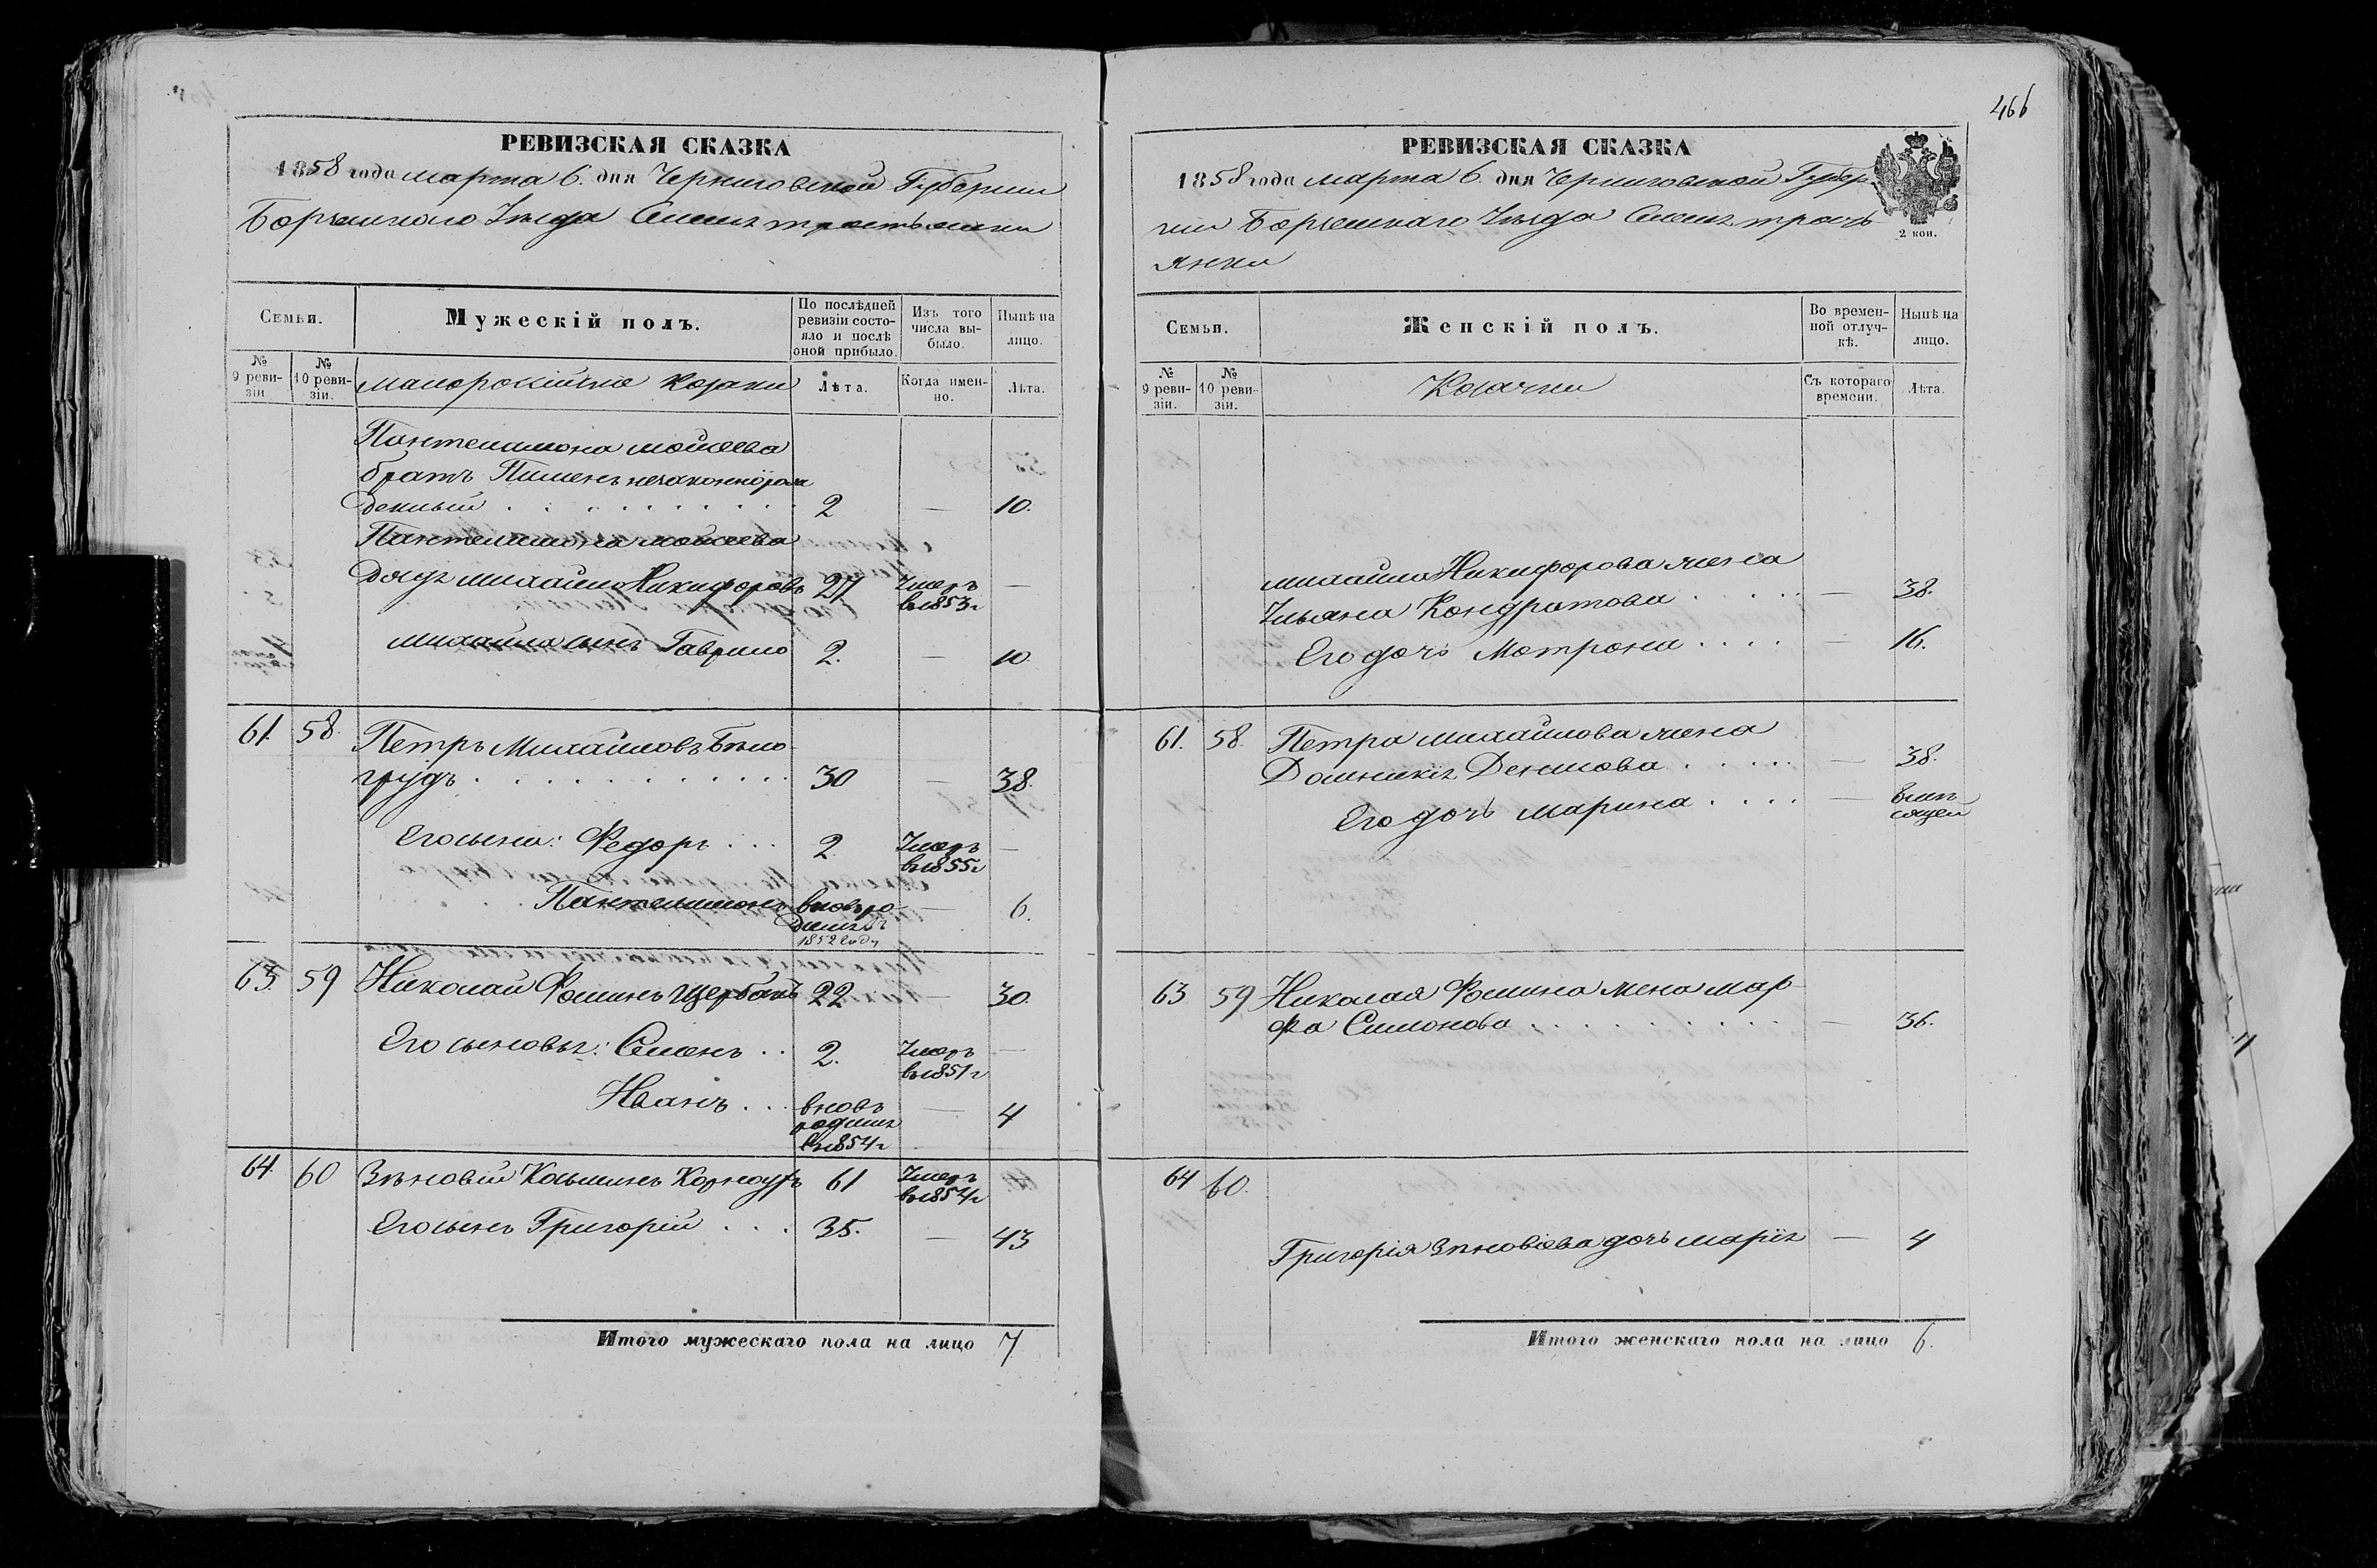 466
РЕВИЗСКАЯ СКАЗКА
1858 года марта 6. дня Черниговской Губернии
Борзенского Уезда Села тростьянки
Семьи.
Мужескій полъ.
По послѣдней ревизіи состояло и послѣ оной прибыло.
Изъ того числа выбыло.
Нынѣ на лицо.
№ 9 ревизіи.
№ 10 ревизіи.
малоросійскіе козаки
Лѣта.
Когда именно.
Лѣта.
Пантелимона моисеева
братъ Пименъ незаконнорож
денный 2 — 10.
Пантелимона моисеева
дядя михайло Никифоровъ 27 Умеръ в 1853 г —
михайла сынъ Гаврило 2. — 10
61. 58. Петръ Михайловъ Бѣло
грудъ 30 — 38.
Его сыны: Федоръ 2. Умеръ в 1855 г —
Пантелимонъ вновь ро
дился 1852 году — 6.
63. 59 Николай Фоминъ Щербакъ 22 — 30.
Его сыновья: Семенъ 2. Умеръ в 1851 г —
Иванъ вновь родился в 1854 г — 4
64. 60 Зѣновій Козминъ Корноухъ 61 Умеръ в 1854 г
Его сынъ Григорій 35. — 43
Итого мужескаго пола на лицо 7
РЕВИЗСКАЯ СКАЗКА
1858 года марта 6. дня Черниговской Губер
ніи Борзенскаго Уезда Села трость
янки
2 коп.
Семьи.
Женскій полъ.
Во временной отлучкѣ.
Нынѣ на лицо.
№ 9 ревизіи.
№ 10 ревизіи.
Козачки
Съ котораго времени.
Лѣта.
михайла Никифорова жена
Ульяна Кондратова — 38.
Его дочь Мотрона — 16.
61. 58. Петра михайлова жена
Домникія Денисова — 38.
Его дочь марина —
63 59 Николая Фомина жена мар
фа Симонова — 36.
64 60.
Григорія Зѣновіева дочь марія — 4
Итого женскаго пола на лицо 6.